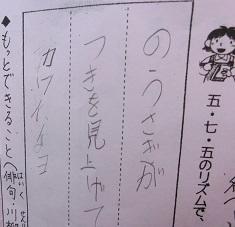 五・七・五のリズムで、
のうさぎが
つきを見上げて
カワイイヨ
◆もっとできること（俳句・川柳
はいく
せんり